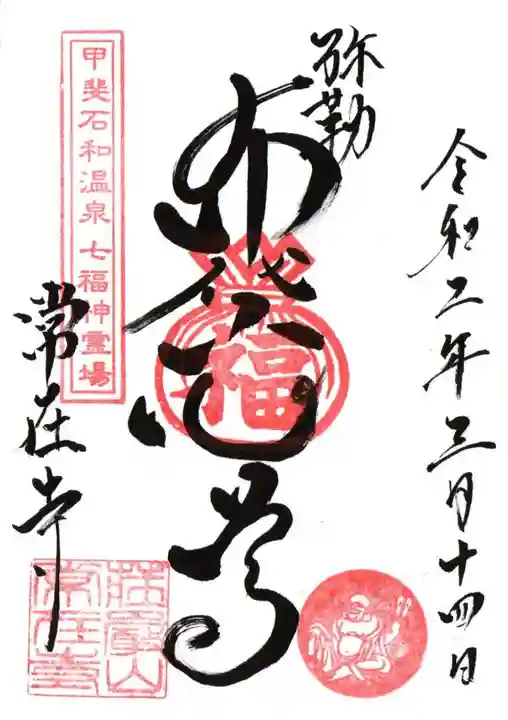 令和二年三月十四日
弥勒
布袋尊
福
甲斐石和温泉七福神霊場
常在寺
常在寺